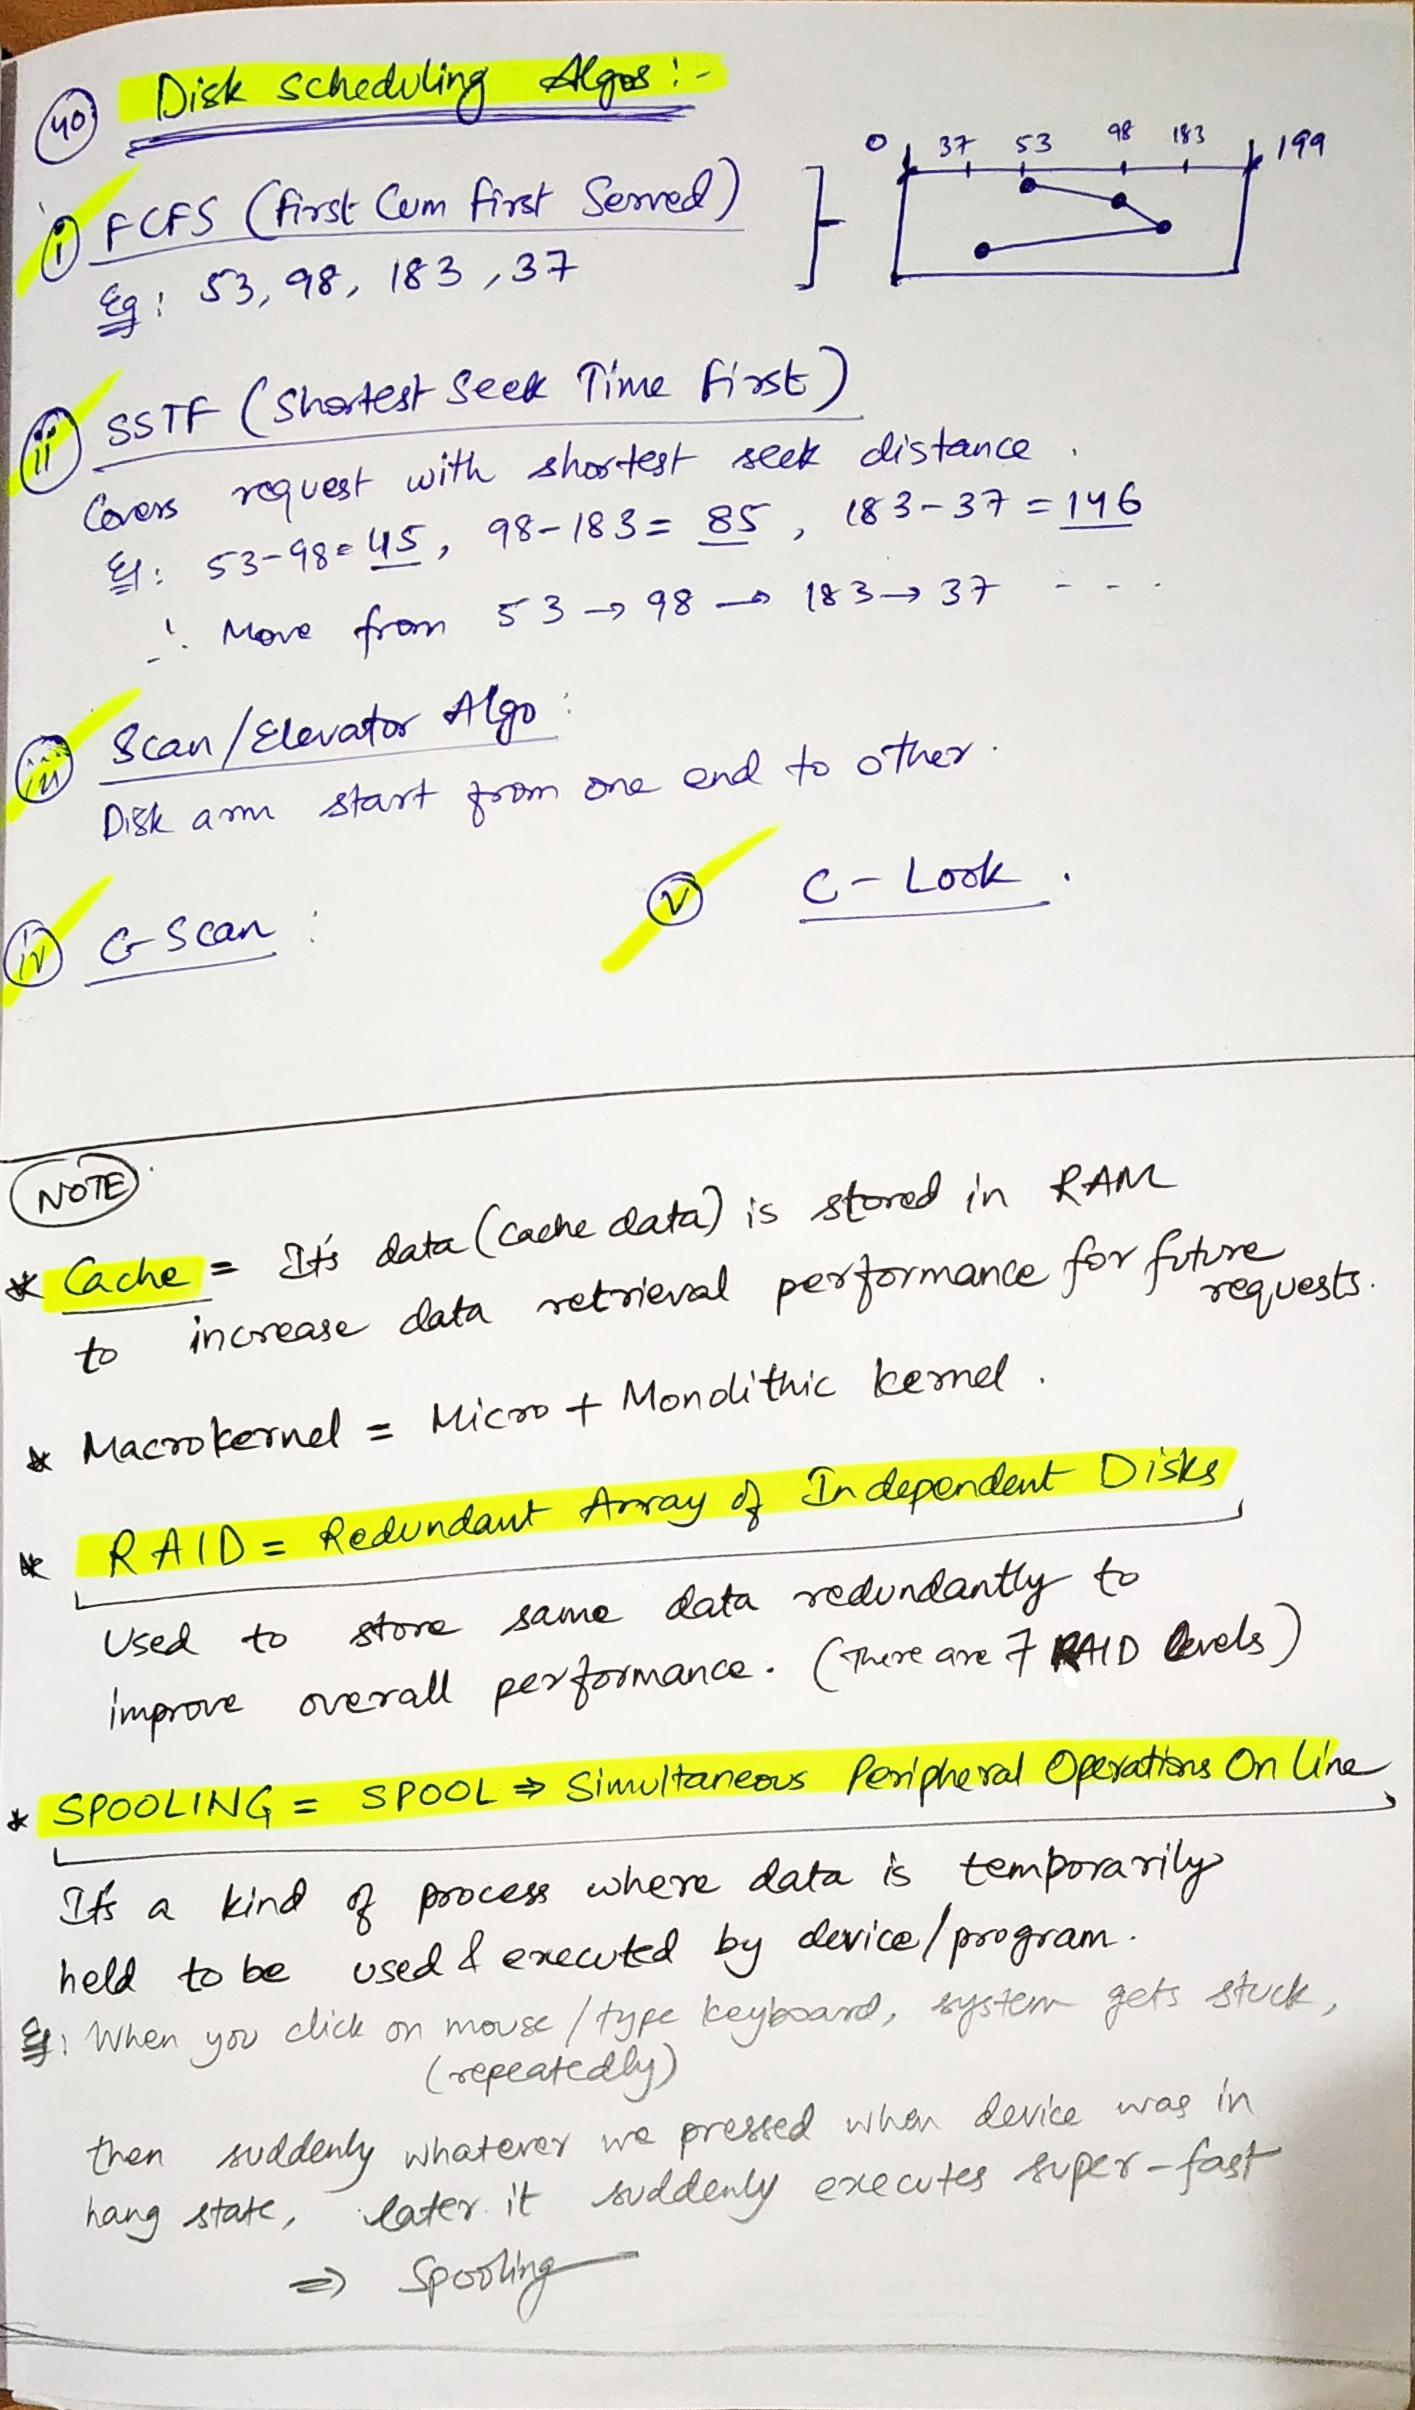 40 Disk Scheduling Algos :-
0 37 53 98 183 199
i FCFS (First Cum First Served)
Eg: 53, 98, 183, 37
ii SSTF (Shortest Seek Time First)
Covers request with shortest seek distance.
Eg: 53-98=45, 98-183=85, 183-37=146
∴ Move from 53 → 98 → 183 → 37 - - -
iii Scan/Elevator Algo:
Disk arm start from one end to other.
iv C-Scan:
v C-Look.
NOTE
* Cache = It's data (cache data) is stored in RAM
to increase data retrieval performance for future
requests.
* Macrokernel = Micro + Monolithic kernel.
* RAID = Redundant Array of Independent Disks
Used to store same data redundantly to
improve overall performance. (There are 7 RAID levels)
* SPOOLING = SPOOL ⇒ Simultaneous Peripheral Operations On Line
It's a kind of process where data is temporarily
held to be used & executed by device/program.
Eg: When you click on mouse/type keyboard, system gets stuck,
(repeatedly)
then suddenly whatever we pressed when device was in
hang state, later it suddenly executes super-fast
⇒ Spooling